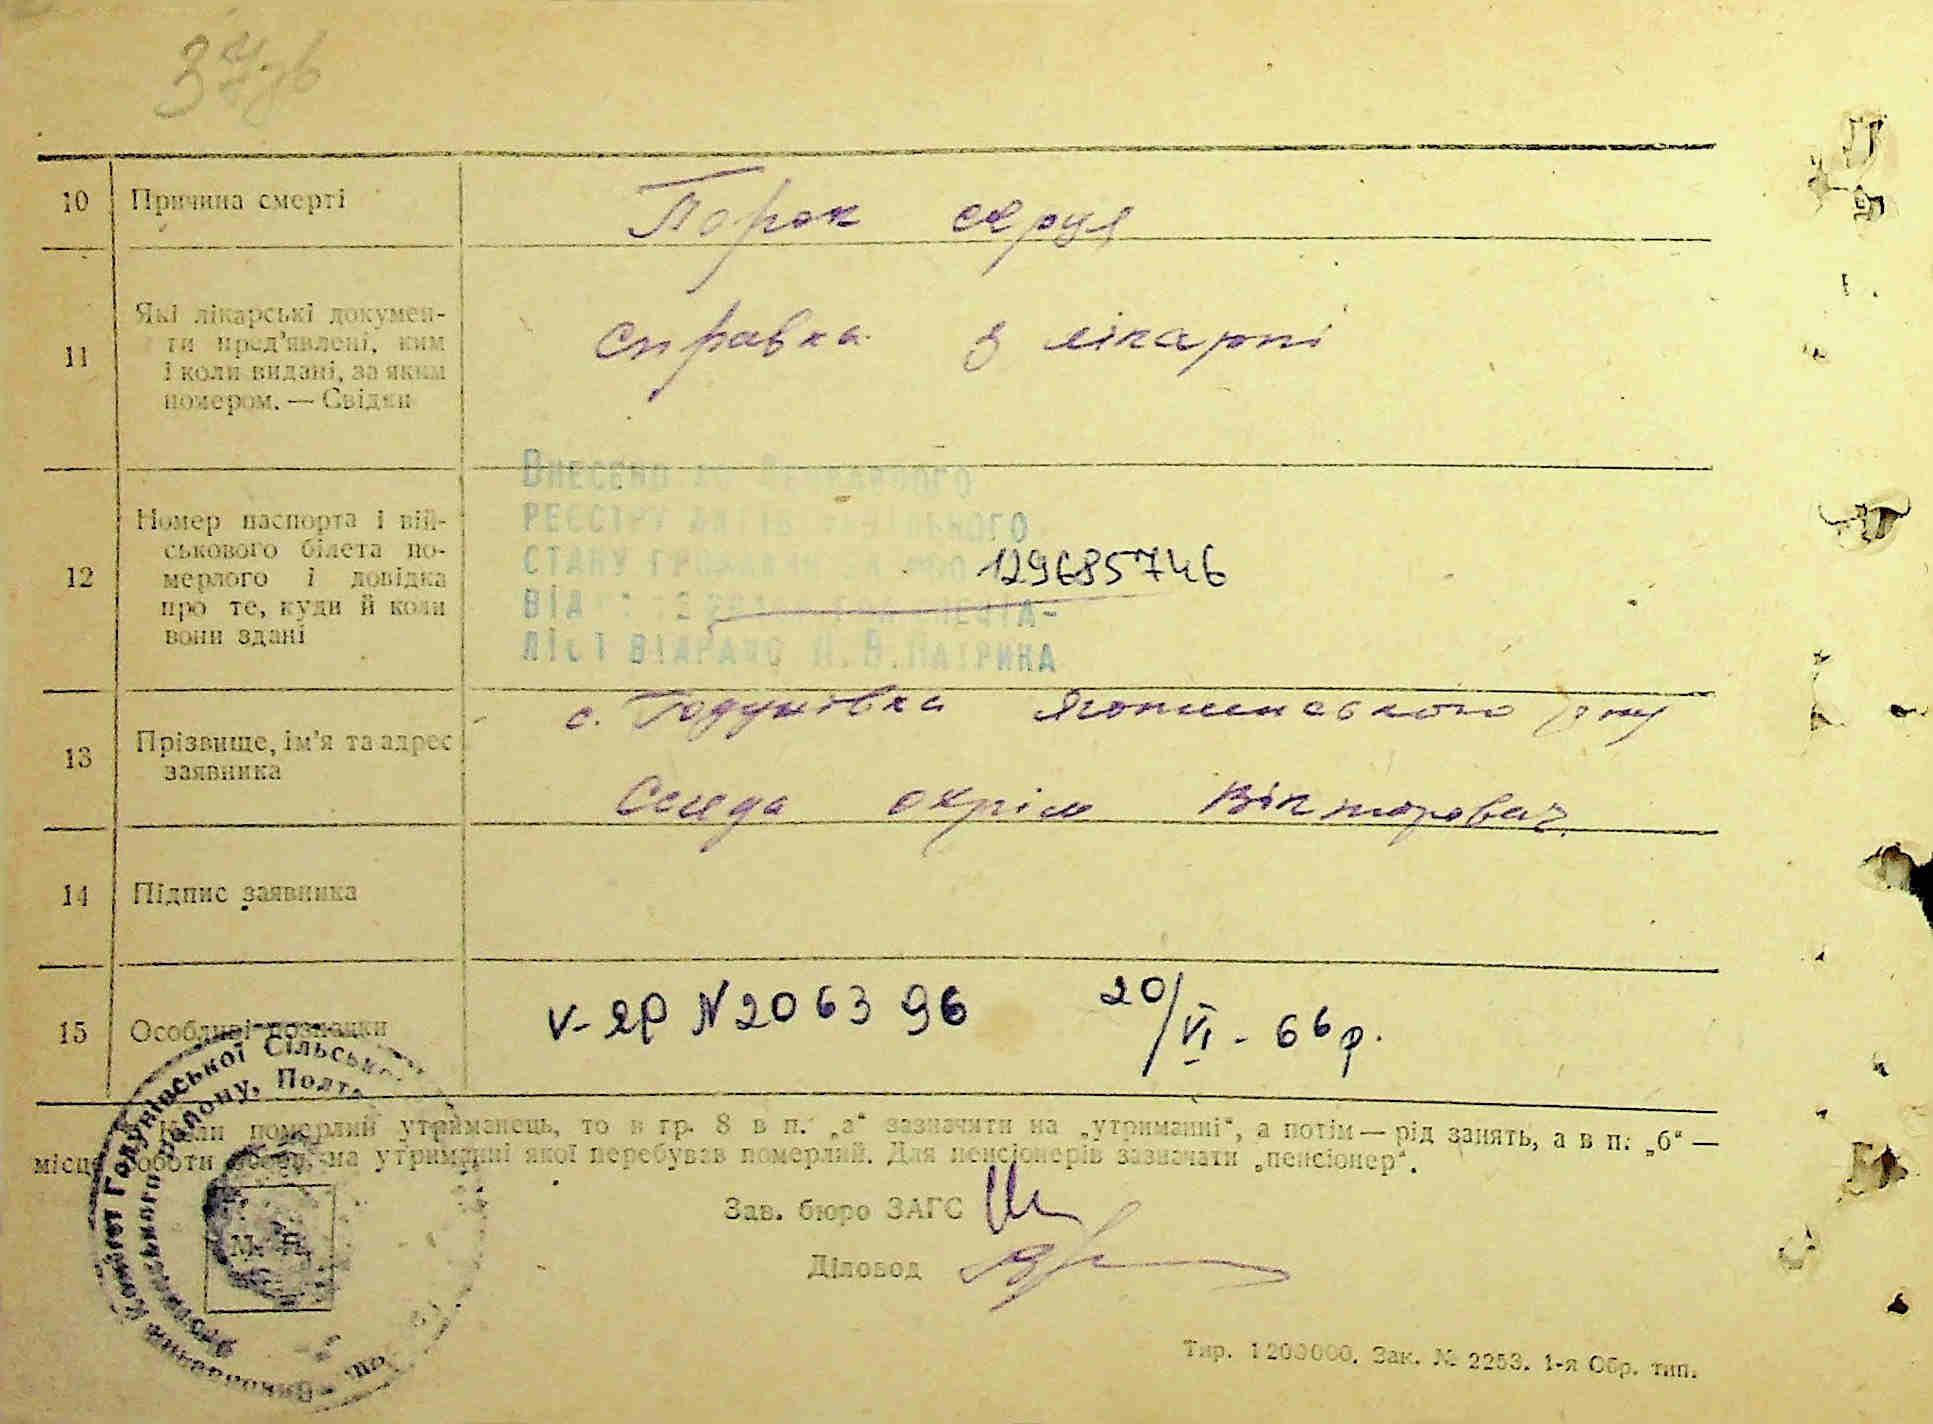 10 Причина смерті
Порок серця
11 Які лікарські докумен-
ти пред'явлені, ким
і коли видані, за яким
номером. — Свідки
справка з лікарні
12 Номер паспорта і вій-
ськового білета по-
мерлого і довідка
про те, куди й коли
вони здані
Внесено до Державного
реєстру актів цивільного
стану громадян за №
129685746
від
ліст
13 Прізвище, ім'я та адрес
заявника
с. Годунівка Яготинського р-ну
Охрім Вікторович.
14 Підпис заявника
15 Особливі позначки
V-ЯР N206396 20/VI - 66 р.
Коли померлий утриманець, то в гр. 8 в п. „а“ зазначити на „утриманні“, а потім — рід занять, а в п. „б“ —
місце роботи особи, на утриманні якої перебував померлий. Для пенсіонерів зазначати „пенсіонер“.
Зав. бюро ЗАГС
Діловод
М. П.
Виконавчий Комітет Годунівської Сільської
району, Полт
Тир. 1200000. Зак. № 2253. 1-я Обр. тип.